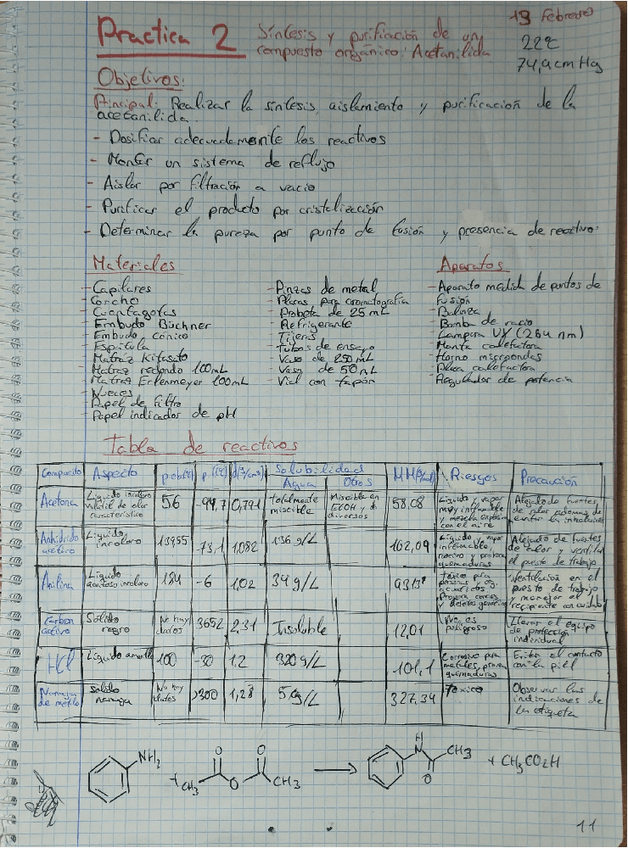 Practica 2
Síntesis y purificación de un
compuesto orgánico: Acetanilida
19 Febrero
22ºC
74,9 cm Hg
Objetivos:
Principal: Realizar la síntesis, aislamiento y purificación de la
acetanilida
- Dosificar adecuadamente los reactivos
- Montar un sistema de reflujo
- Aislar por filtración a vacio
- Purificar el producto por cristalización
- Determinar la pureza por punto de fusión y presencia de reactivo
Materiales
- Capilares
- Corcho
- Cuentagotas
- Embudo Büchner
- Embudo cónico
- Espátula
- Matraz Kitasato
- Matraz redondo 100mL
- Matraz Erlenmeyer 100mL
- Nueces
- Papel de filtro
- Papel indicador de pH
- Pinzas de metal
- Placas para cromatografía
- Probeta de 25 mL
- Refrigerante
- Tijeras
- Tubos de ensayo
- Vaso de 250 mL
- Vaso de 50 mL
- Vial con tapón
Aparatos
- Aparato medida de puntos de
fusión
- Balanza
- Bomba de vacio
- Campana UV (254 nm)
- Manta calefactora
- Horno microondas
- Placa calefactora
- Regulador de potencia
Tabla de reactivos
Compuesto Aspecto p.eb(ºC) p.f(ºC) d(g/cm³) Solubilidad Agua Otros MM(g/mol) Riesgos Precaución
Acetona Líquido incoloro 56 -94,7 0,791 totalmente miscible Miscible en EtOH y diversos 58,08 Líquido y vapor muy inflamables Alejado de fuentes de calor
Anhídrido acético Líquido incoloro -73,1 1,082 136 g/L 102,09 Líquido y vapor inflamables Alejado de fuentes de calor y ventilar el puesto de trabajo
Anilina Líquido aceitoso incoloro 184 -6 1,02 34 g/L Ventilación en el puesto de trabajo y manejar el recipiente con cuidado
Carbón activo Sólido negro No hay datos 3652 2,31 Insoluble 12,01 No es peligroso Llevar el equipo de protección individual
HCl Líquido amarillo 100 -30 1,2 320 g/L 101,1 Corrosivo para metales, provoca quemaduras Evitar el contacto con la piel
Naranja de metilo Sólido naranja No hay datos >300 1,28 5,0g/L 327,34 Toxico Observar las indicaciones de la etiqueta
NH₂ + CH₃ O O O CH₃ → H N CH₃ O + CH₃CO₂H
11